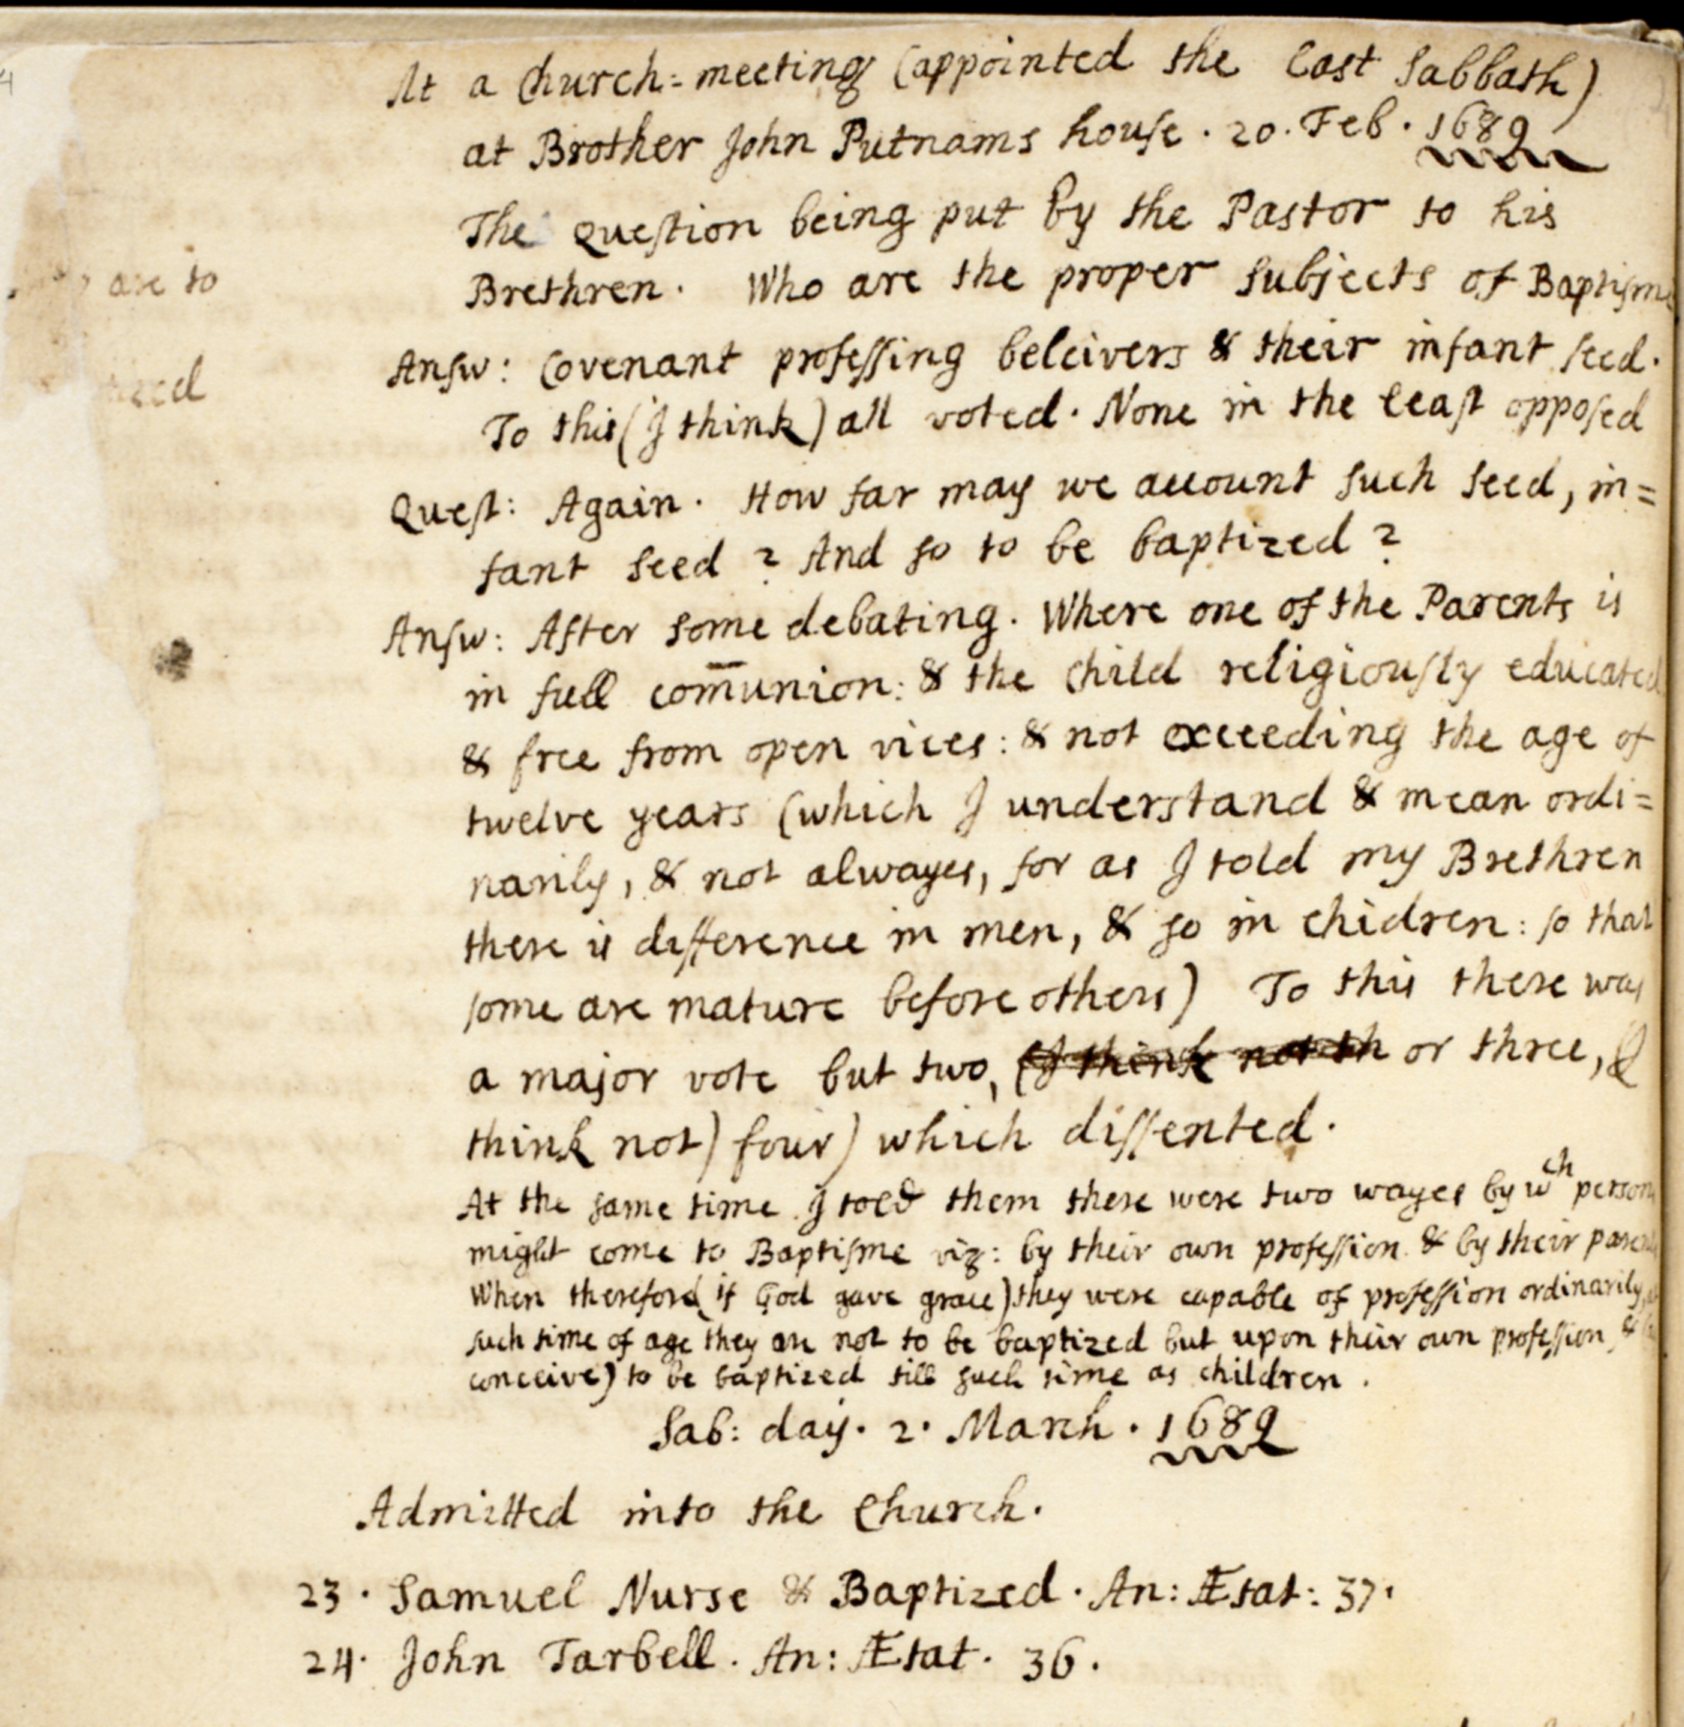 At a Church-meeting (appointed the last Sabbath)
at Brother John Putnams house . 20 . Feb . 1689
The Question being put by the Pastor to his
are to
Brethren . Who are the proper subjects of Baptisme
Answ: Covenant professing beleivers & their infant seed .
To this (I think) all voted . None in the least opposed
Quest: Again . How far may we account such seed, in=
fant seed ? And so to be baptized ?
Answ: After some debating . Where one of the Parents is
in full com̅union : & the child religiously educated
& free from open vices : & not exceeding the age of
twelve years (which I understand & mean ordi=
narily, & not alwayes, for as I told my Brethren
there is difference in men, & so in chidren : so that
some are mature before others) To this there was
a major vote but two, (I think not th or three, (I
think not) four) which dissented .
At the same time I told them there were two wayes by wch persons
might come to Baptisme viz : by their own profession & by their parents
When therefore (if God gave grace) they were capable of profession ordinarily,
such time of age they are not to be baptized but upon their own profession &
conceive) to be baptized till such time as children .
Sab: day . 2 . March . 1689
Admitted into the Church .
23 . Samuel Nurse & Baptized . An: Ætat: 37 .
24 . John Tarbell . An: Ætat . 36 .